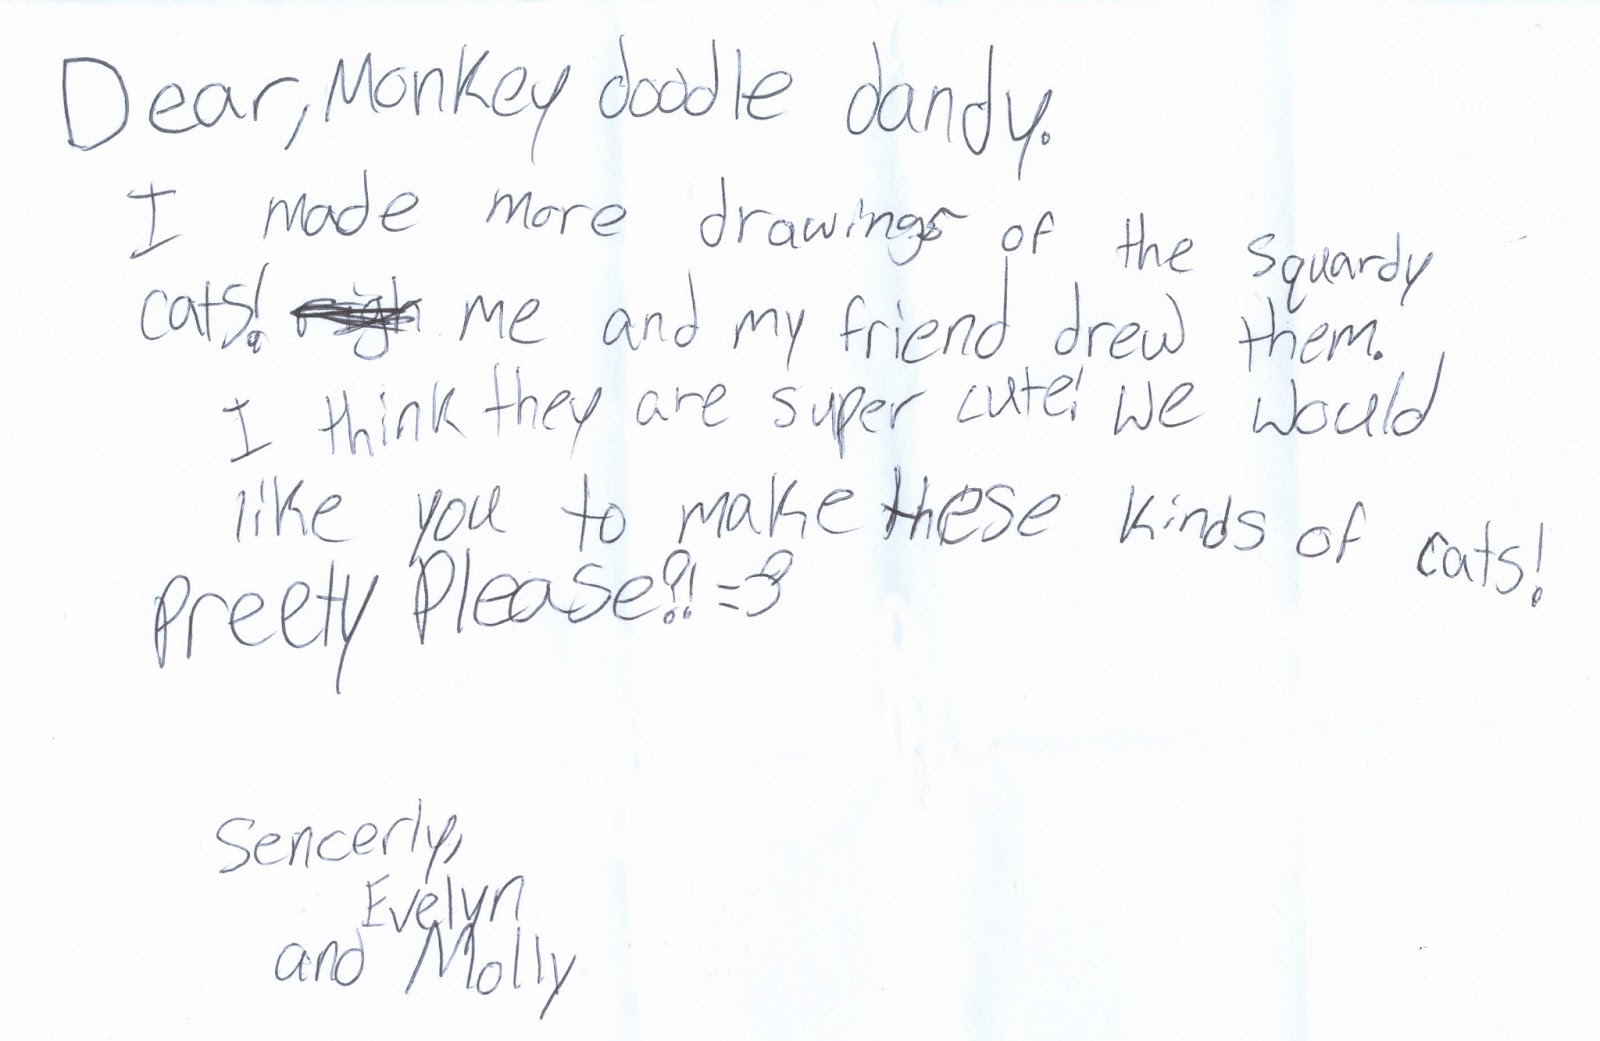 Dear, Monkey doodle dandy.
I made more drawings of the squardy
cats! me and my friend drew them.
I think they are super cute! We would
like you to make these kinds of cats!
Preety Please?! =3
Sencerly,
Evelyn
and Molly